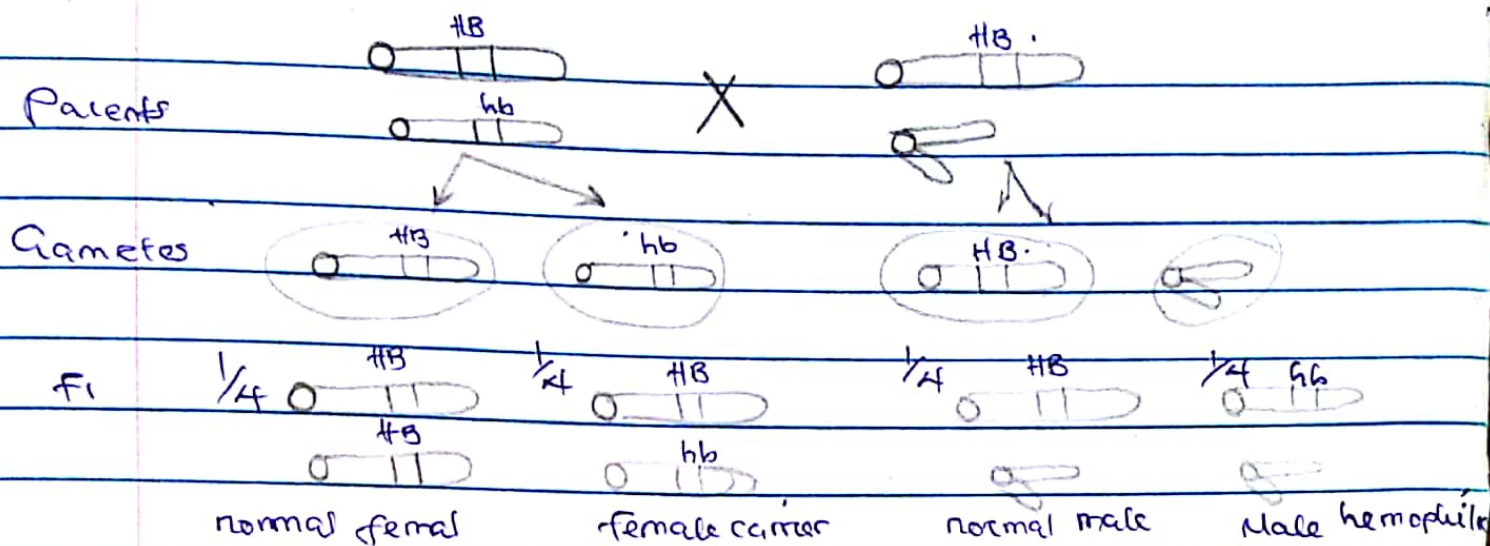 HB HB
Parents X
hb
Gametes HB hb HB
F1 1/4 HB 1/4 HB 1/4 HB 1/4 hb
HB hb
normal femal female carrier normal male Male hemophilic